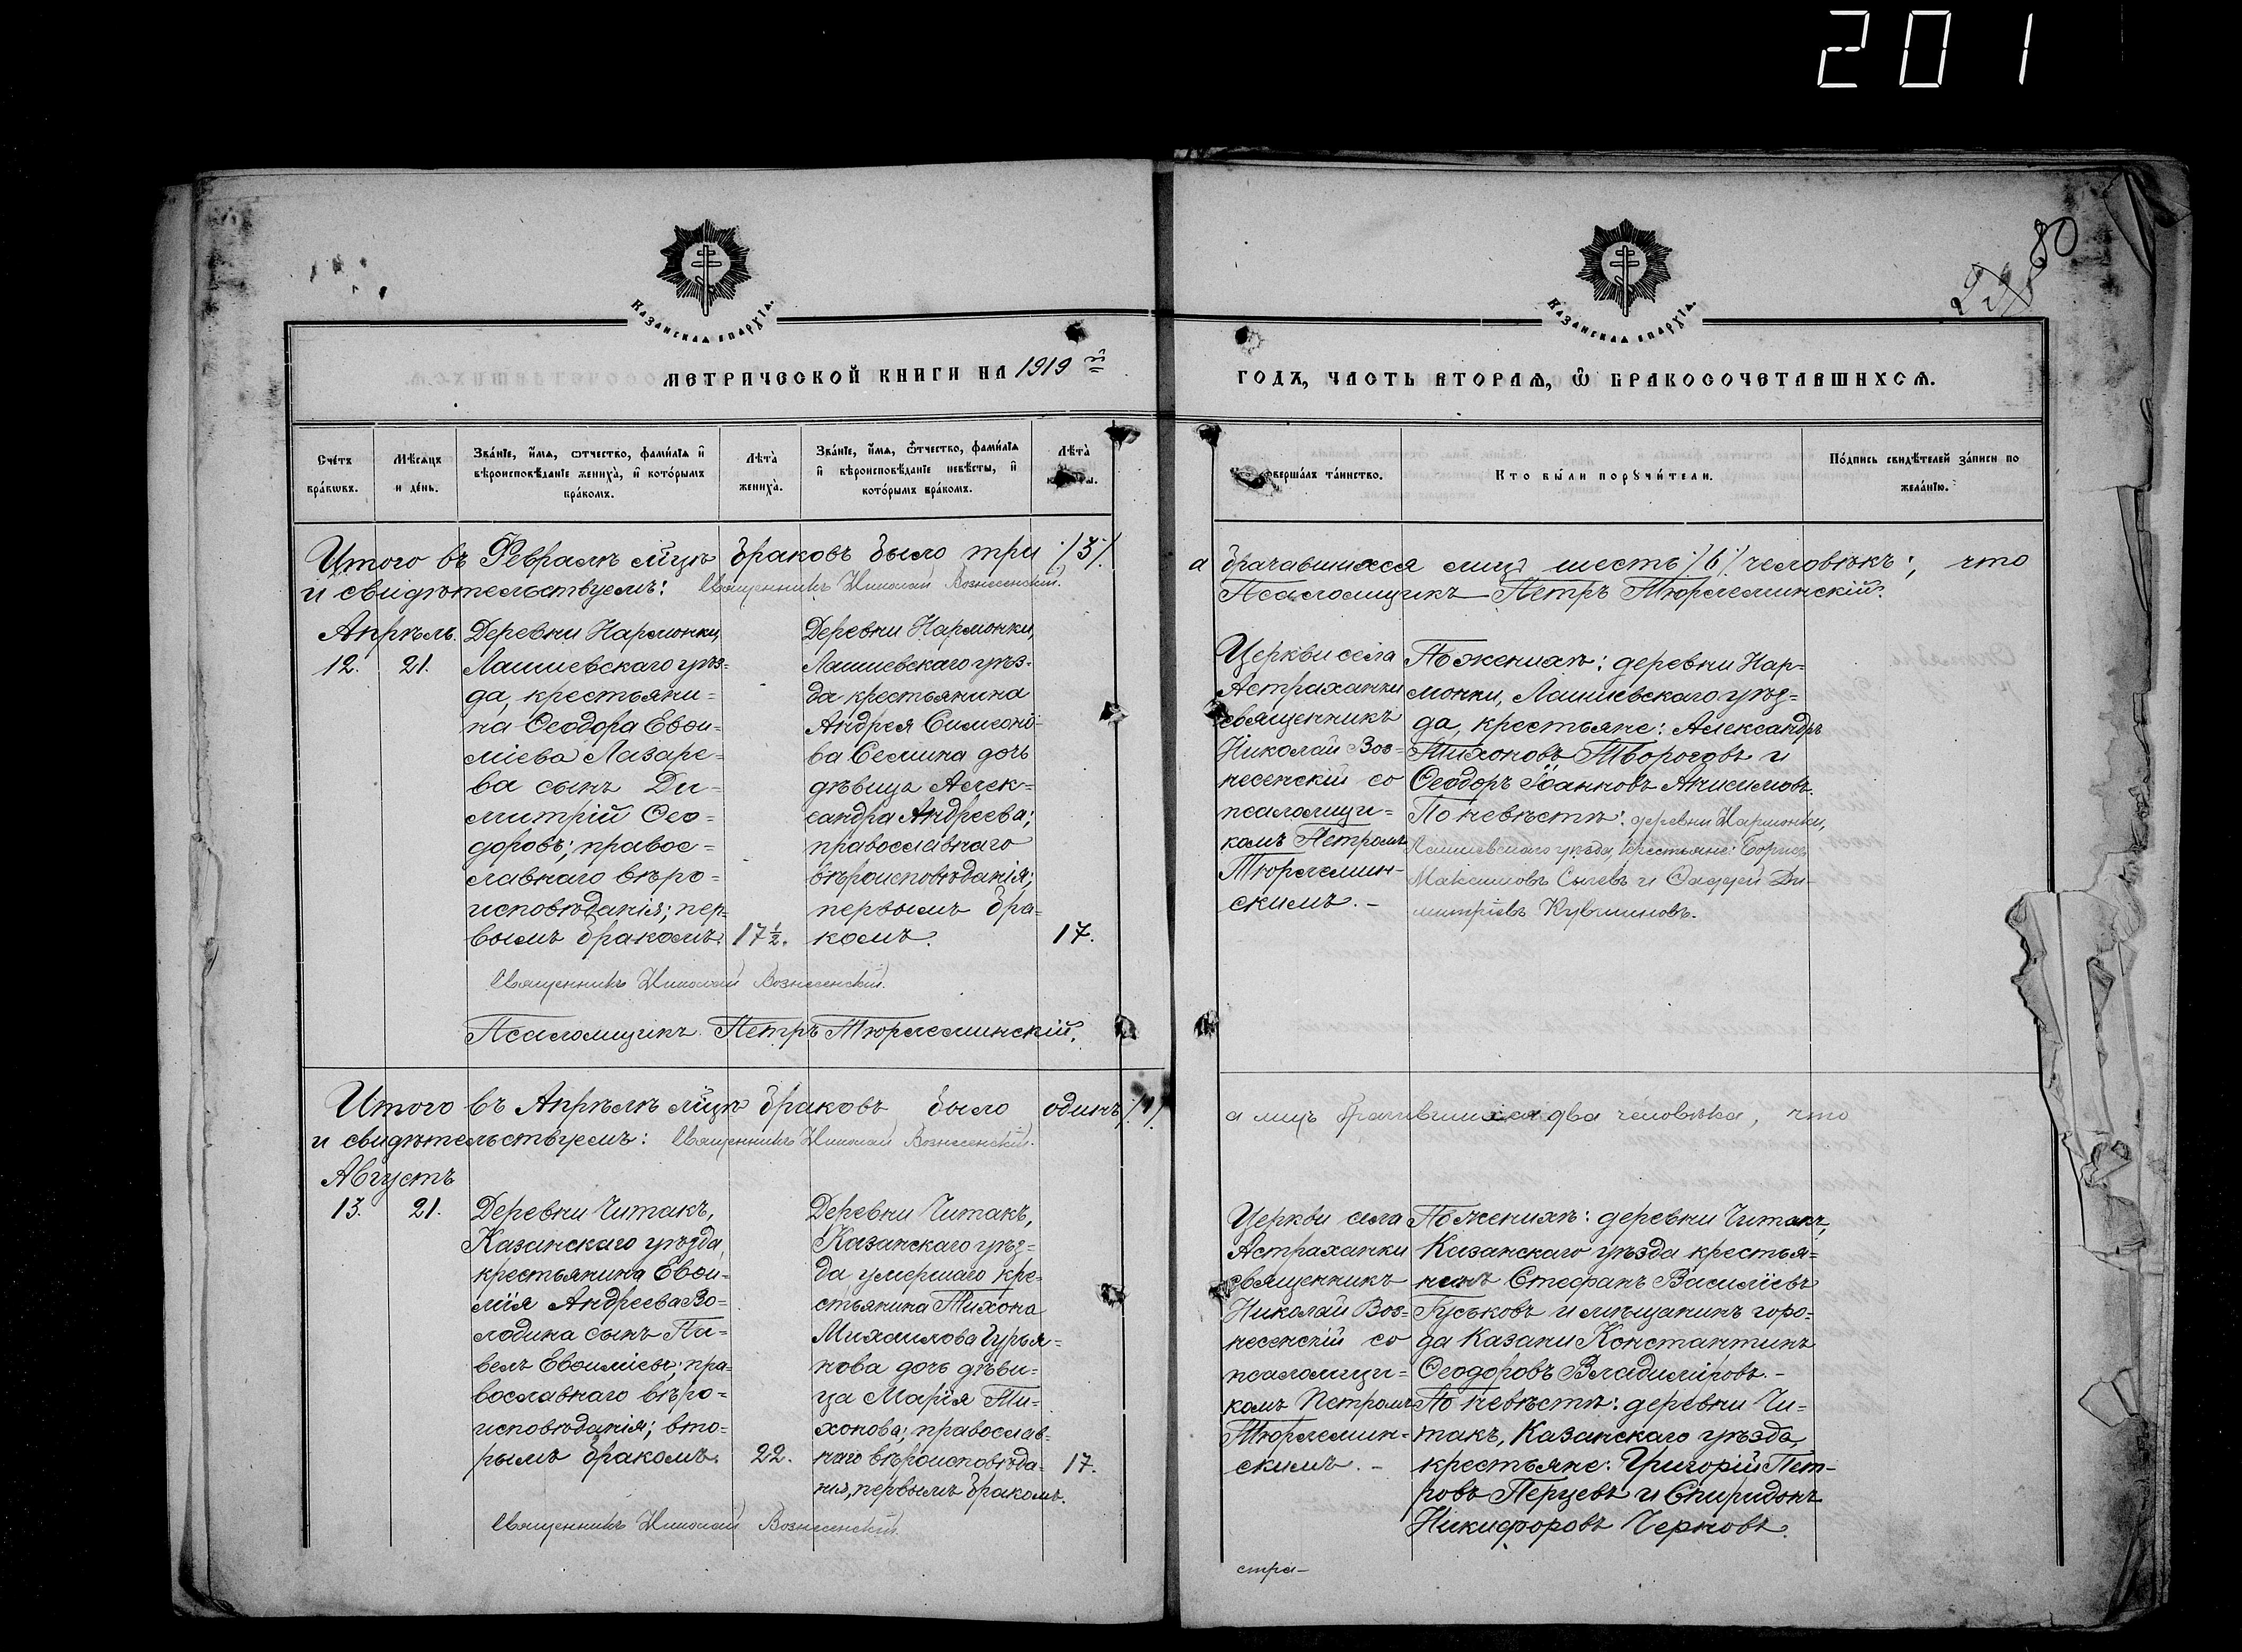 201
80
КАЗАНСКАЯ ЕПАРХІЯ.
КАЗАНСКАЯ ЕПАРХІЯ.
МЕТРИЧЕСКОЙ КНИГИ НА 1919 й
ГОДЪ, ЧАСТЬ ВТОРАЯ, Ѡ БРАКОСОЧЕТАВШИХСЯ.
Счетъ браковъ.
Мѣсяцъ и день.
Званіе, имя, отчество, фамилія и
вѣроисповѣданіе жениха, и которымъ
бракомъ.
Лѣта
жениха.
Званіе, имя, отчество, фамилія
и вѣроисповѣданіе невѣсты, и
которымъ бракомъ.
Лѣта
совершалъ таинство.
Кто были поручители.
Подпись свидѣтелей записи по
желанію.
Итого въ Февралѣ мцѣ браковъ было три /3/
а брачавшихся лицъ шесть /6/ человѣкъ; что
и свидѣтельствуемъ: Священникъ Николай Вознесенскій.
Псаломщикъ Петръ Тюрлеминскій.
Апрѣль.
12.
21.
Деревни Нармонки,
Лаишевскаго уѣз-
да, крестьяни-
на Ѳеодора Евѳи-
міева Лазаре-
ва сынъ Ди-
митрій Ѳео-
доровъ; правос-
лавнаго вѣро-
исповѣданія; пер-
вымъ бракомъ.
17 ½.
Деревни Нармонки,
Лаишевскаго уѣз-
да крестьянина
Андрея Симеоно-
ва Семина дочь
дѣвица Алек-
сандра Андреева;
православнаго
вѣроисповѣданія;
первымъ бра-
комъ.
17.
Церкви села
Астраханки
священникъ
Николай Воз-
несенскій со
псаломщи-
комъ Петромъ
Тюрлемин-
скимъ. –
По женихѣ: деревни Нар-
монки, Лаишевскаго уѣз-
да, крестьяне: Александръ
Тихоновъ Творогов и
Ѳеодоръ Іоанновъ Анисимовъ.
По невѣстѣ: деревни Нармонки,
Лаишевскаго уѣзда, крестьяне: Борисъ
Максимовъ Сычевъ и Ѳаддей Ди-
митріевъ Кувшиновъ.
Священникъ Николай Вознесенскій.
Псаломщикъ Петръ Тюрлеминскій.
Итого въ Апрѣлѣ мцѣ браковъ было одинъ /1/
а лицъ брачившихся два человѣка, что
и свидѣтельствуемъ: Священникъ Николай Вознесенскій.
Августъ
13.
21.
Деревни Читакъ,
Казанскаго уѣзда,
крестьянина Евѳи-
мія Андреева Во-
лодина сынъ Па-
велъ Евѳиміевъ; пра-
вославнаго вѣро-
исповѣданія; вто-
рымъ бракомъ.
22.
Деревни Читакъ,
Казанскаго уѣз-
да умершаго кре-
стьянина Тихона
Михаилова Гурья-
нова дочь дѣви-
ца Марія Ти-
хонова; православ-
наго вѣроисповѣда-
нія, первымъ бракомъ.
17.
Церкви села
Астраханки
священникъ
Николай Воз-
несенскій со
псаломщи-
комъ Петромъ
Тюрлемин-
скимъ. –
По женихѣ: деревни Читакъ,
Казанскаго уѣзда крестья-
нинъ Стефанъ Василіевъ
Гуськовъ и мѣщанинъ горо-
да Казани Константинъ
Ѳеодоровъ Владиміровъ. –
По невѣстѣ: деревни Чи-
такъ, Казанскаго уѣзда,
крестьяне: Григорій Пет-
ровъ Перцевъ и Спиридонъ
Никифоровъ Черновъ.
Священникъ Николай Вознесенскій.
стра-